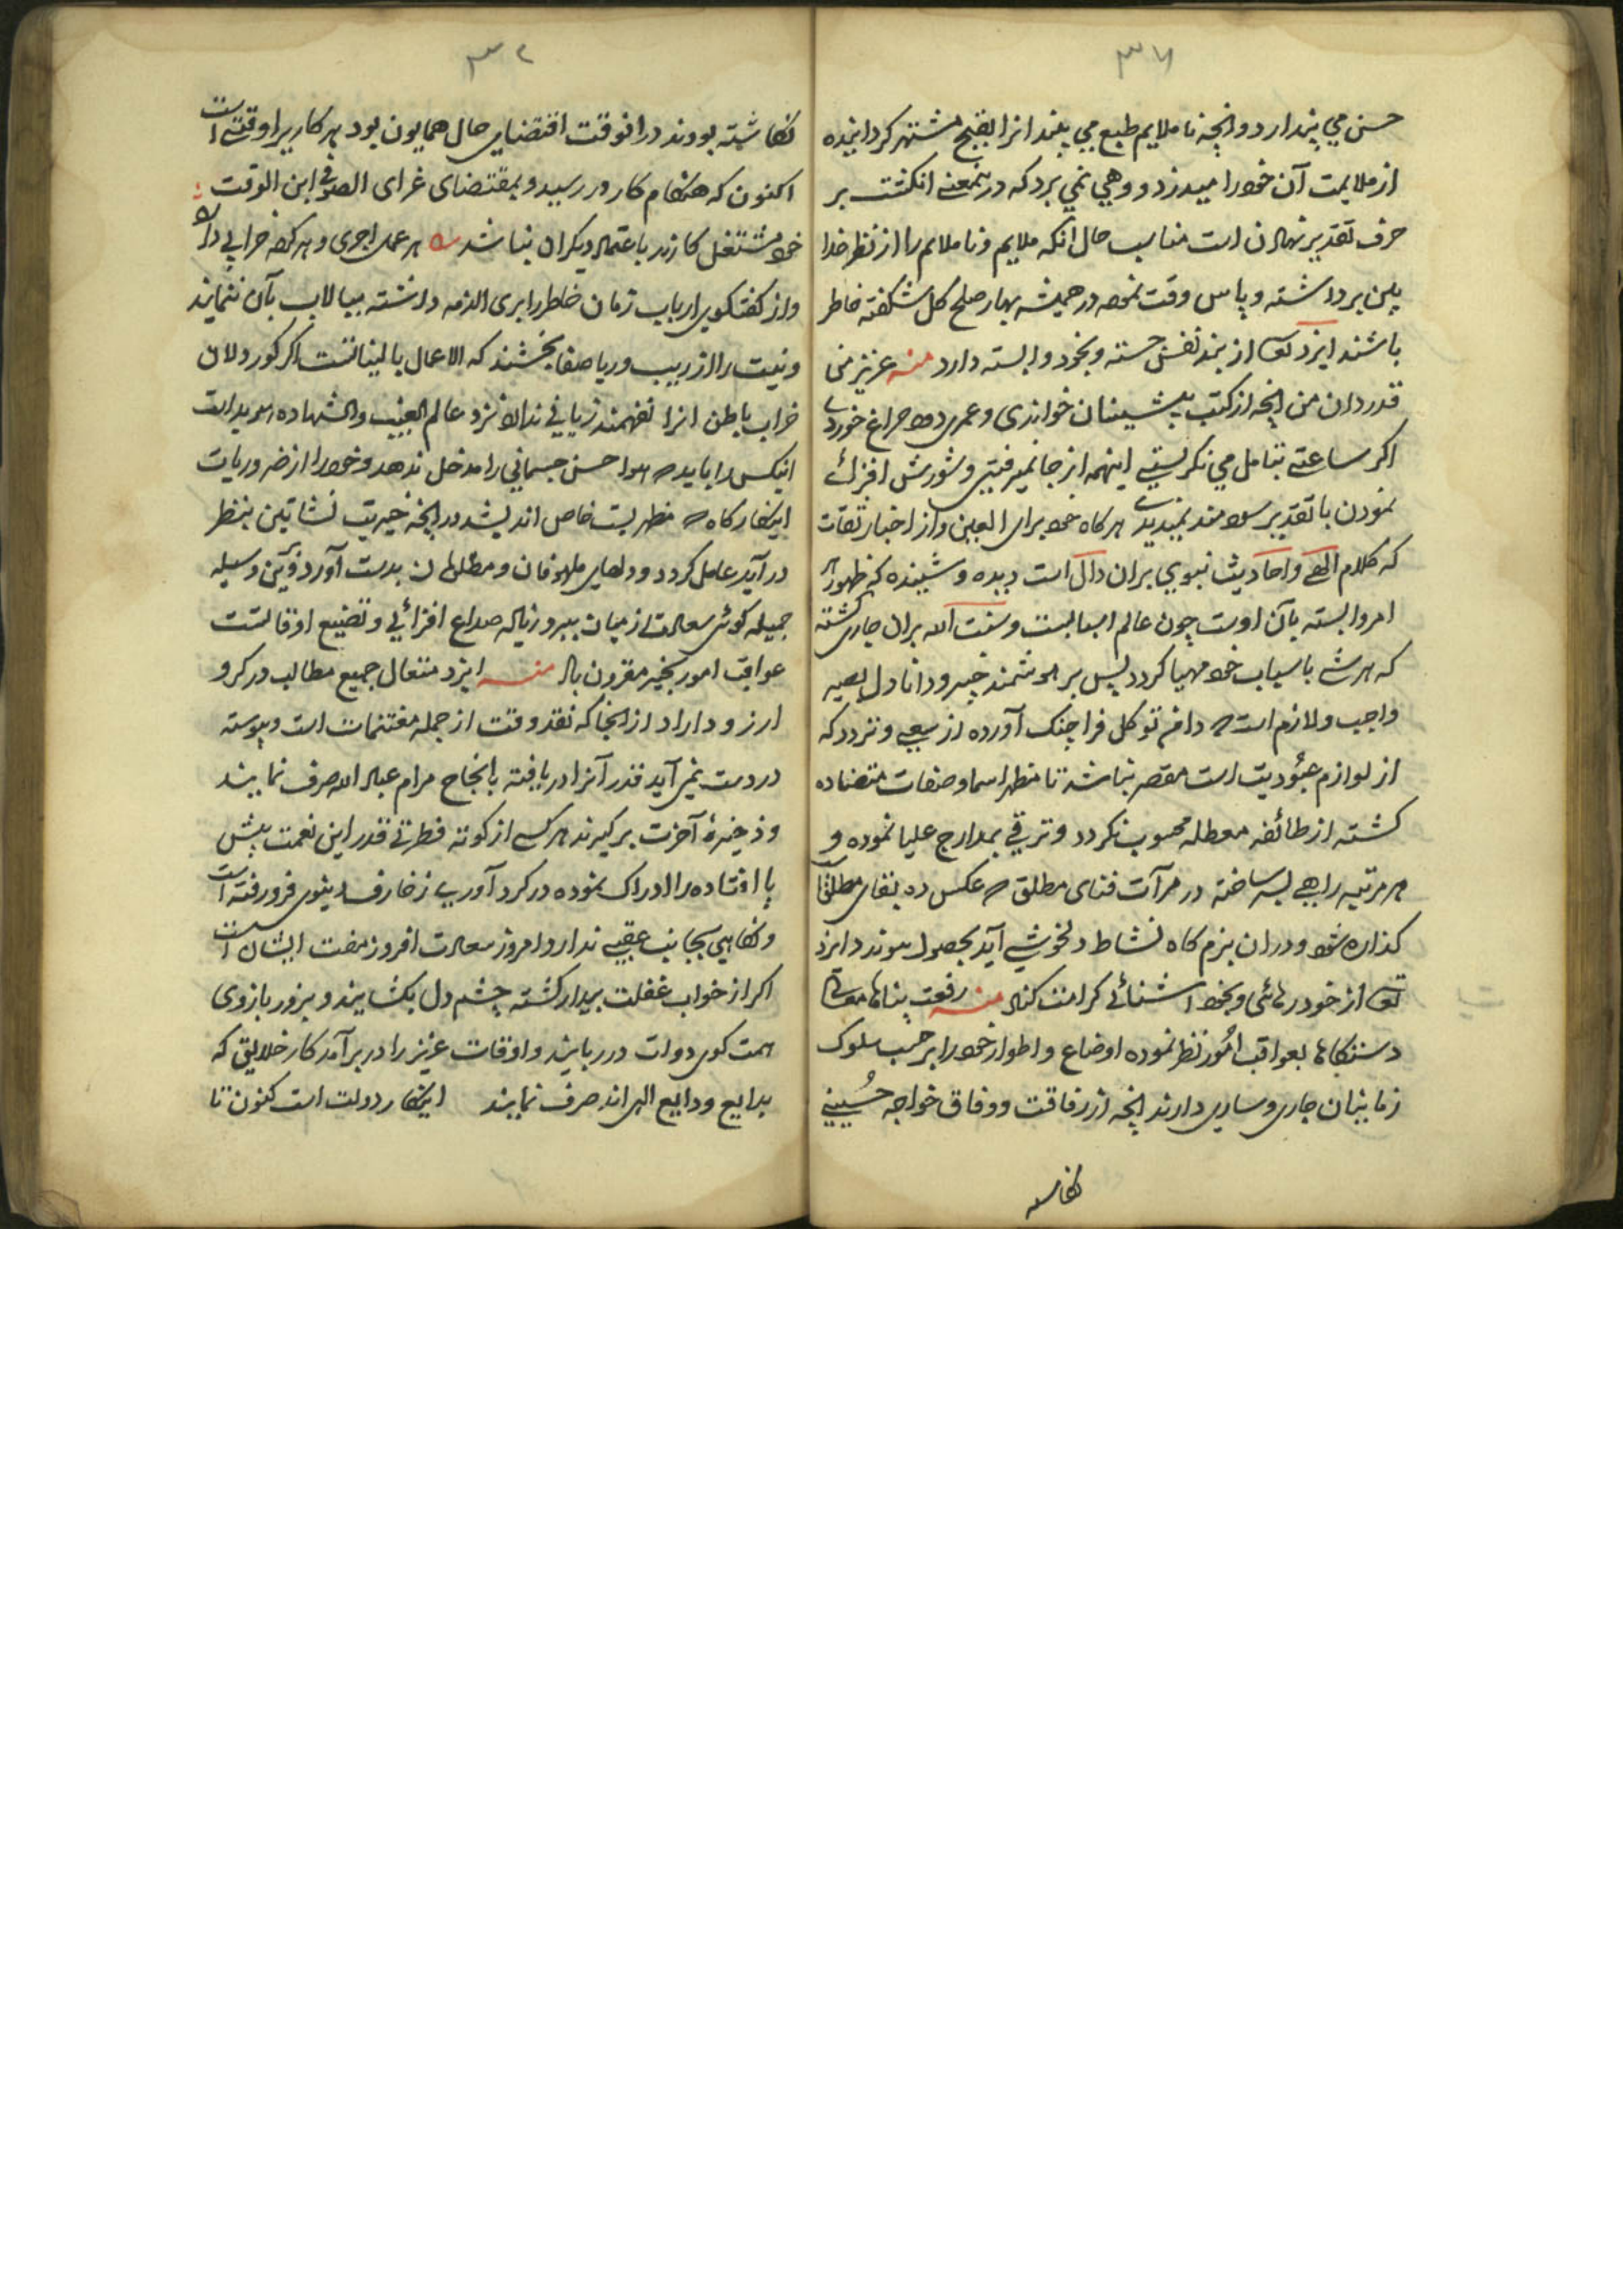 حسن می پندارد و انچه ناملایم طبع می بیند انرا بقبح مشتهر کردانیده
از ملایمت آن خود را میدزدد و وهی نمی برد که درینمعنے انکشت بر
حرف تقدیر نهادن است مناسب حال آنکه ملایم و ناملایم را از نظر خدا
بین برداشته و پاس وقت نموده در همیشه بهار صلح کل شکفته خاطر
باشند ایزد تعا از بند نفس جسته و بخود وابسته دارد منه عزیز من
قدردان من انچه از کتب پیشینان خواندی و عمری دود چراغ خوردے
اکر ساعتے بتامل می نکریستے اینهمه از جا نمیرفتی و شورش افزائے
نمودن با تقدیر سودمند نمیدیدے هرکاه خود برای العین و از اخبار ثقات
که کلام الهی و احادیث نبوی بران دال است دیده و شنیده که ظهور هر
امر وابسته بآن اوست چون عالم اسبابست و سنت الله بران جاری کشته
که هر شے باسباب خود مهیا کردد پس بر هوشمند خبیر و دانا دل بصیر
واجب و لازم است که دامن توکل فراچنک آورده از سعی و تردد که
از لوازم عبودیت است مقصر نباشد تا مظهر اسما و صفات متضاده
کشته از طائفه معطله محسوب نکردد و ترقی بمدارج علیا نموده و
هر مرتبه را طے ساخته در مرآت فنای مطلق که عکس ده بقای مطلق است
کذاره شود و دران بزم کاه نشاط و نخوشے آید بحصول پیوندد ایزد
تعا از خود رهائی و بخود اشنائے کرامت کناد منه رفعت پناها معالی
دستکاها بعواقب امور نظر نموده اوضاع و اطوار خود را بر حسب سلوک
زمانیان جاری و ساری دارند انچه از رفاقت و وفاق خواجه حسینے
نکاشته
نکاشته بودند درانوقت اقتضای حال همایون بود هر کاریرا وقتے است
اکنون که هنکام کار در رسید و بمقتضای غرای الصوفی ابن الوقت
خود مشتغل کار زید باعتماد دیکران نباشد هر عمل اجری و هر کرده جزایی دارد
و از کفتکوی ارباب زمان خاطر را بری الذمه داشته مبالات بآن ننمایند
و نیت را از ریب و ریا صفا بخشند که الاعمال بالنیاتست اکر کور دلان
خراب باطن انرا نفهمند زیانی ندارد نزد عالم الغیب والشهاده هویداست
انیکس را باید که هوا حسن جسمانی را مدخل ندهد و خود را از ضروریات
اینکارکاه که مظهریست خاص اندیشد در انچه خیریت نشاتین بنظر
درآید عامل کردد و دلهای ملهوفان و مظلومان بدست آورد و باین وسیله
جمیله کوئی سعادت از میان ببرد زیاده صداع افزائی و تضییع اوقاتست
عواقب امور بخیر مقرون باد منه ایزد متعال جمیع مطالب در کرو
ارزو داراد ازانجا که نقد وقت از جمله مغتنمات است و پیوسته
در دست نمی آید قدر آنرا دریافته بانجاح مرام عباد الله صرف نمایند
و ذخیرهٔ آخرت برکیرند هر کسے از کوته فطرتی قدر این نعمت پیش
پا افتاده را ادراک نموده در کرد آوری زخارف دنیوی فرو رفته است
و نکاهی بجانب عقبے ندارد امروز سعادت افروز مفت ایشان است
اکر از خواب غفلت بیدار کشته چشم دل بکشایند و بزور بازوی
همت کوی دولت در ربایند و اوقات عزیز را در برآمد کار خلایق که
بدایع ودایع الهی اند صرف نمایند اینکار دولت است کنون تا